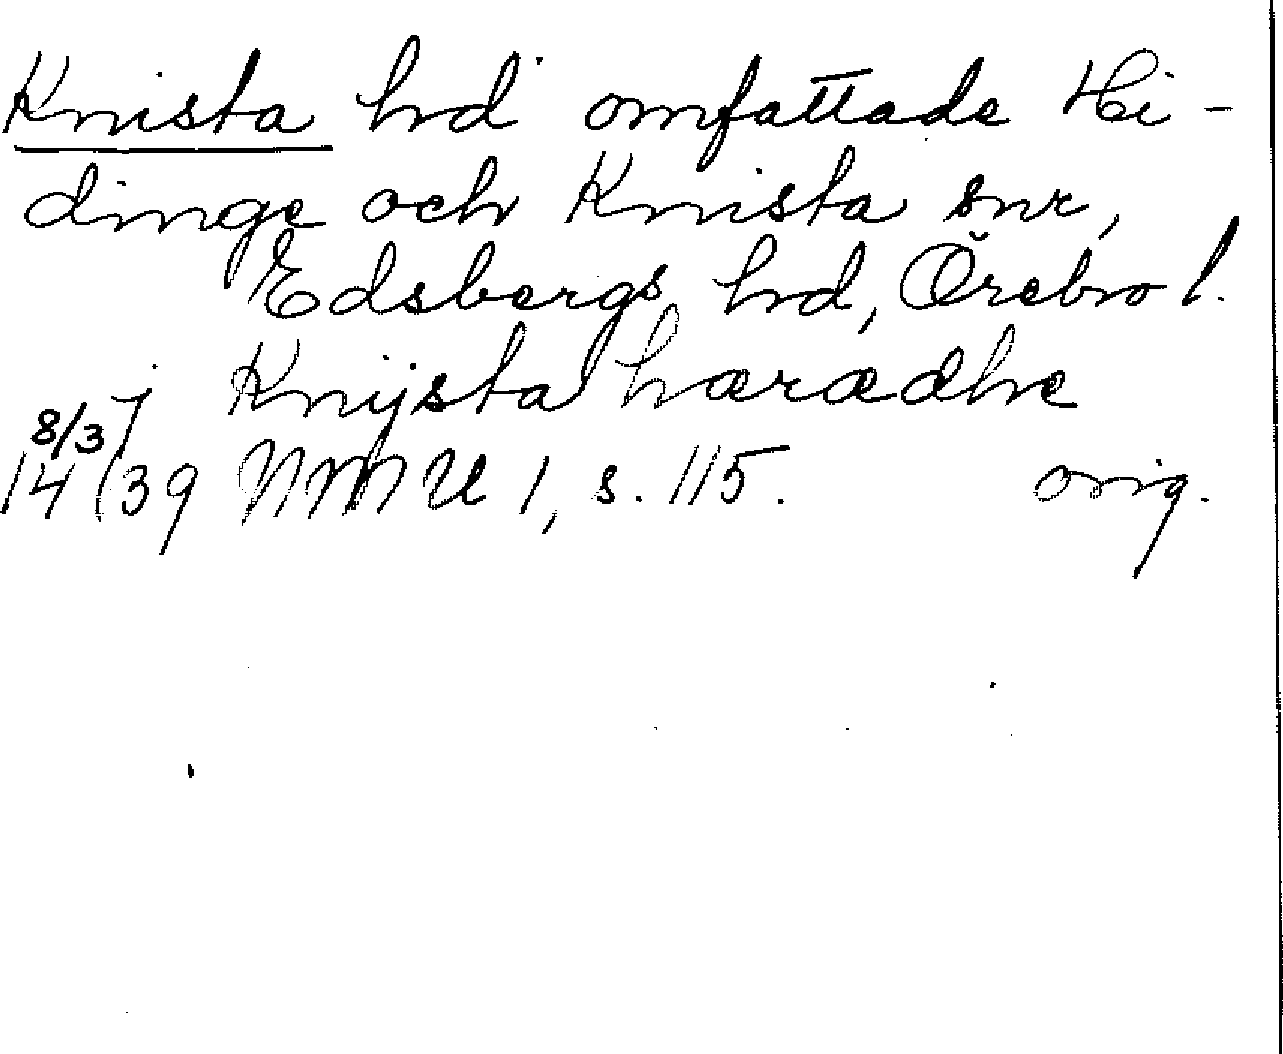 Knista hrd omfattade Hi-
dinge och Knista snr,
Edsbergs hrd, Örebro l.
j Knijsta hærædhe
8/3
1439 NMU 1, s. 115. orig.